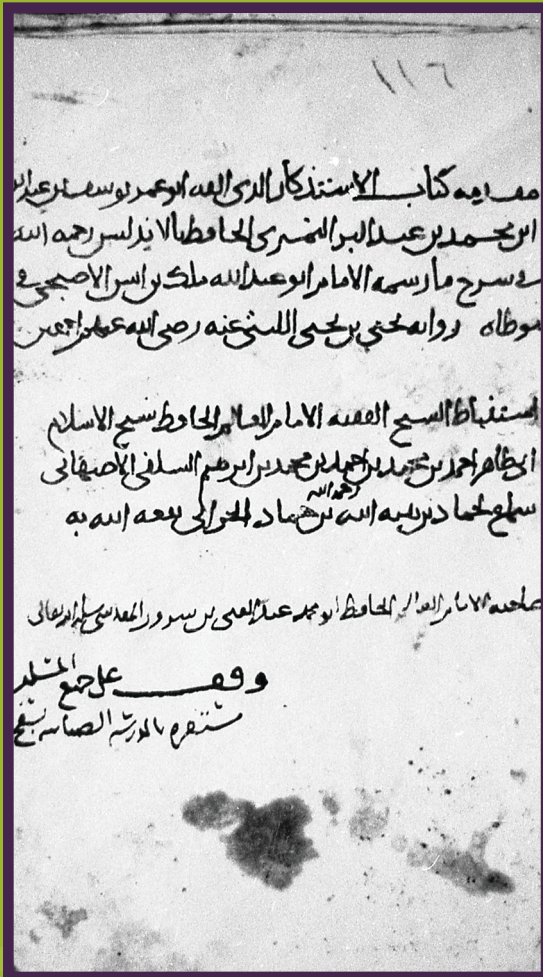 ١١٦
مقدمة كتاب الاستذكار الذي الفه ابو عمر يوسف بن عبد الله
ابن محمد بن عبد البر النمري الحافظ بالاندلس رحمه الله
في شرح ما رسمه الامام ابو عبد الله ملك بن انس الاصبحي في
موطاه رواية يحيى بن يحيى الليثي عنه رضي الله عنهم اجمعين
استنباط الشيخ الفقيه الامام العالم الحافظ شيخ الاسلام
ابي طاهر احمد بن محمد بن احمد بن محمد بن ابرهيم السلفي الاصبهاني
سماع لحماد بن هبه الله بن حماد الحراني نفعه الله به
رحمه الله
صاحبه الامام العالم الحافظ ابو محمد عبد الغني بن سرور المقدسي
وقف على جميع المسلمين
مستقره بالمدرسة الضيائية بسفح